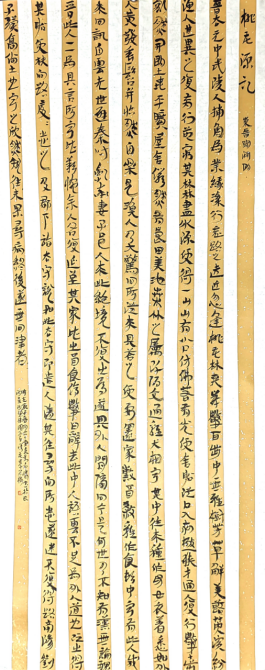 桃花源记 東晋陶渊明
晋太元中武陵人捕鱼为業缘溪行忘路之远近忽逢桃花林夹岸數百步中無雜树芳草鲜美落英缤纷
渔人甚異之復前行欲窮其林林盡水源便得一山山有小口仿佛若有光便舍船從口入初極狹才通人復行數十
豁然開朗土地平曠屋舍儼然有良田美池桑竹之属阡陌交通雞犬相闻其中往来種作男女衣着悉如外
人黄發垂髫并怡然自樂見漁人乃大驚问所從来具答之便要還家設酒殺雞作食村中闻有此人咸
来问訊自云先世避秦時亂率妻子邑人来此絶境不復出焉遂與外人間隔问今是何世乃不知有漢無論魏
晋此人一一為具言所闻皆歎惋餘人各復延至其家皆出酒食停數日辭去此中人語云不足為外人道也既出得
其船便扶向路處處志之及郡下詣太守說如此太守即遣人隨其往尋向所志遂迷不復得路南陽劉
子驥高尚士也闻之欣然規往未果尋病終後遂無问津者